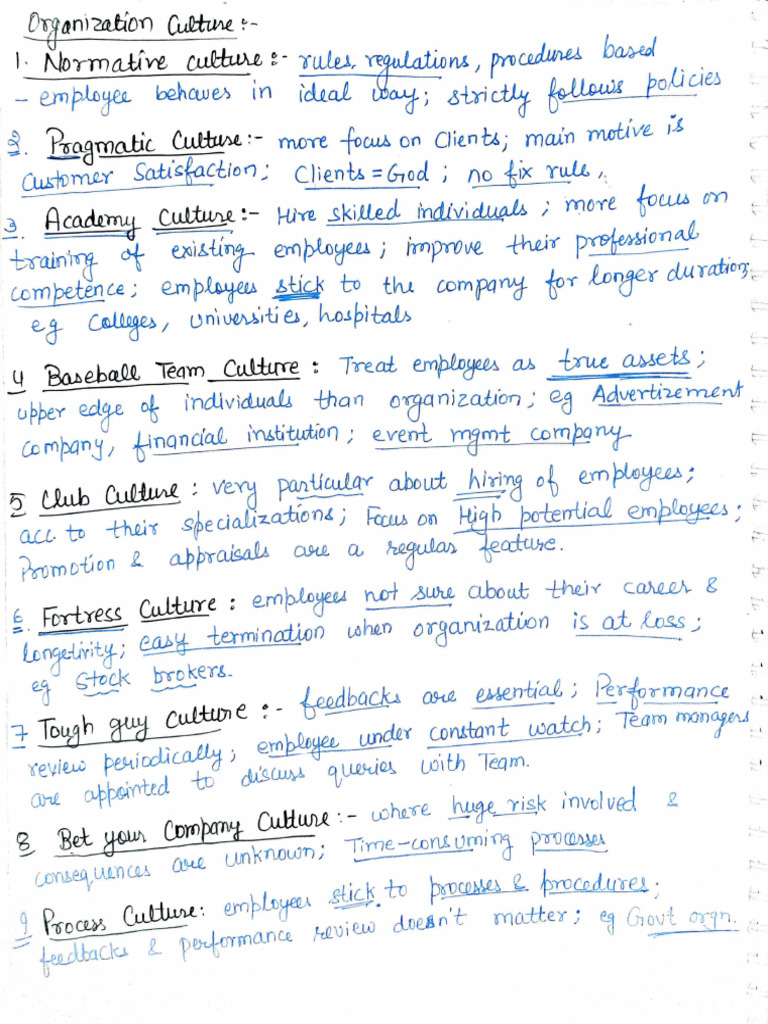 Organization Culture :-
1. Normative culture :- rules, regulations, procedures based
- employee behaves in ideal way; strictly follows policies
2. Pragmatic Culture :- more focus on Clients; main motive is
Customer Satisfaction; Clients = God; no fix rule,
3 Academy Culture :- Hire skilled individuals; more focus on
training of existing employees; improve their professional
competence; employees stick to the company for longer duration;
eg Colleges, Universities, hospitals
4 Baseball Team Culture : Treat employees as true assets;
upper edge of individuals than organization; eg Advertizement
company, financial institution; event mgmt company
5 Club Culture : very particular about hiring of employees;
acc. to their specializations; Focus on High potential employees;
Promotion & appraisals are a regular feature.
6. Fortress Culture : employees not sure about their career &
longetivity; easy termination when organization is at loss;
eg Stock brokers.
7 Tough guy Culture :- feedbacks are essential; Performance
review periodically; employee under constant watch; Team managers
are appointed to discuss queries with Team.
8 Bet your Company Culture :- where huge risk involved &
consequences are unknown; Time-consuming processes
9 Process Culture : employees stick to processes & procedures;
feedbacks & performance review doesn't matter; eg Govt orgn.